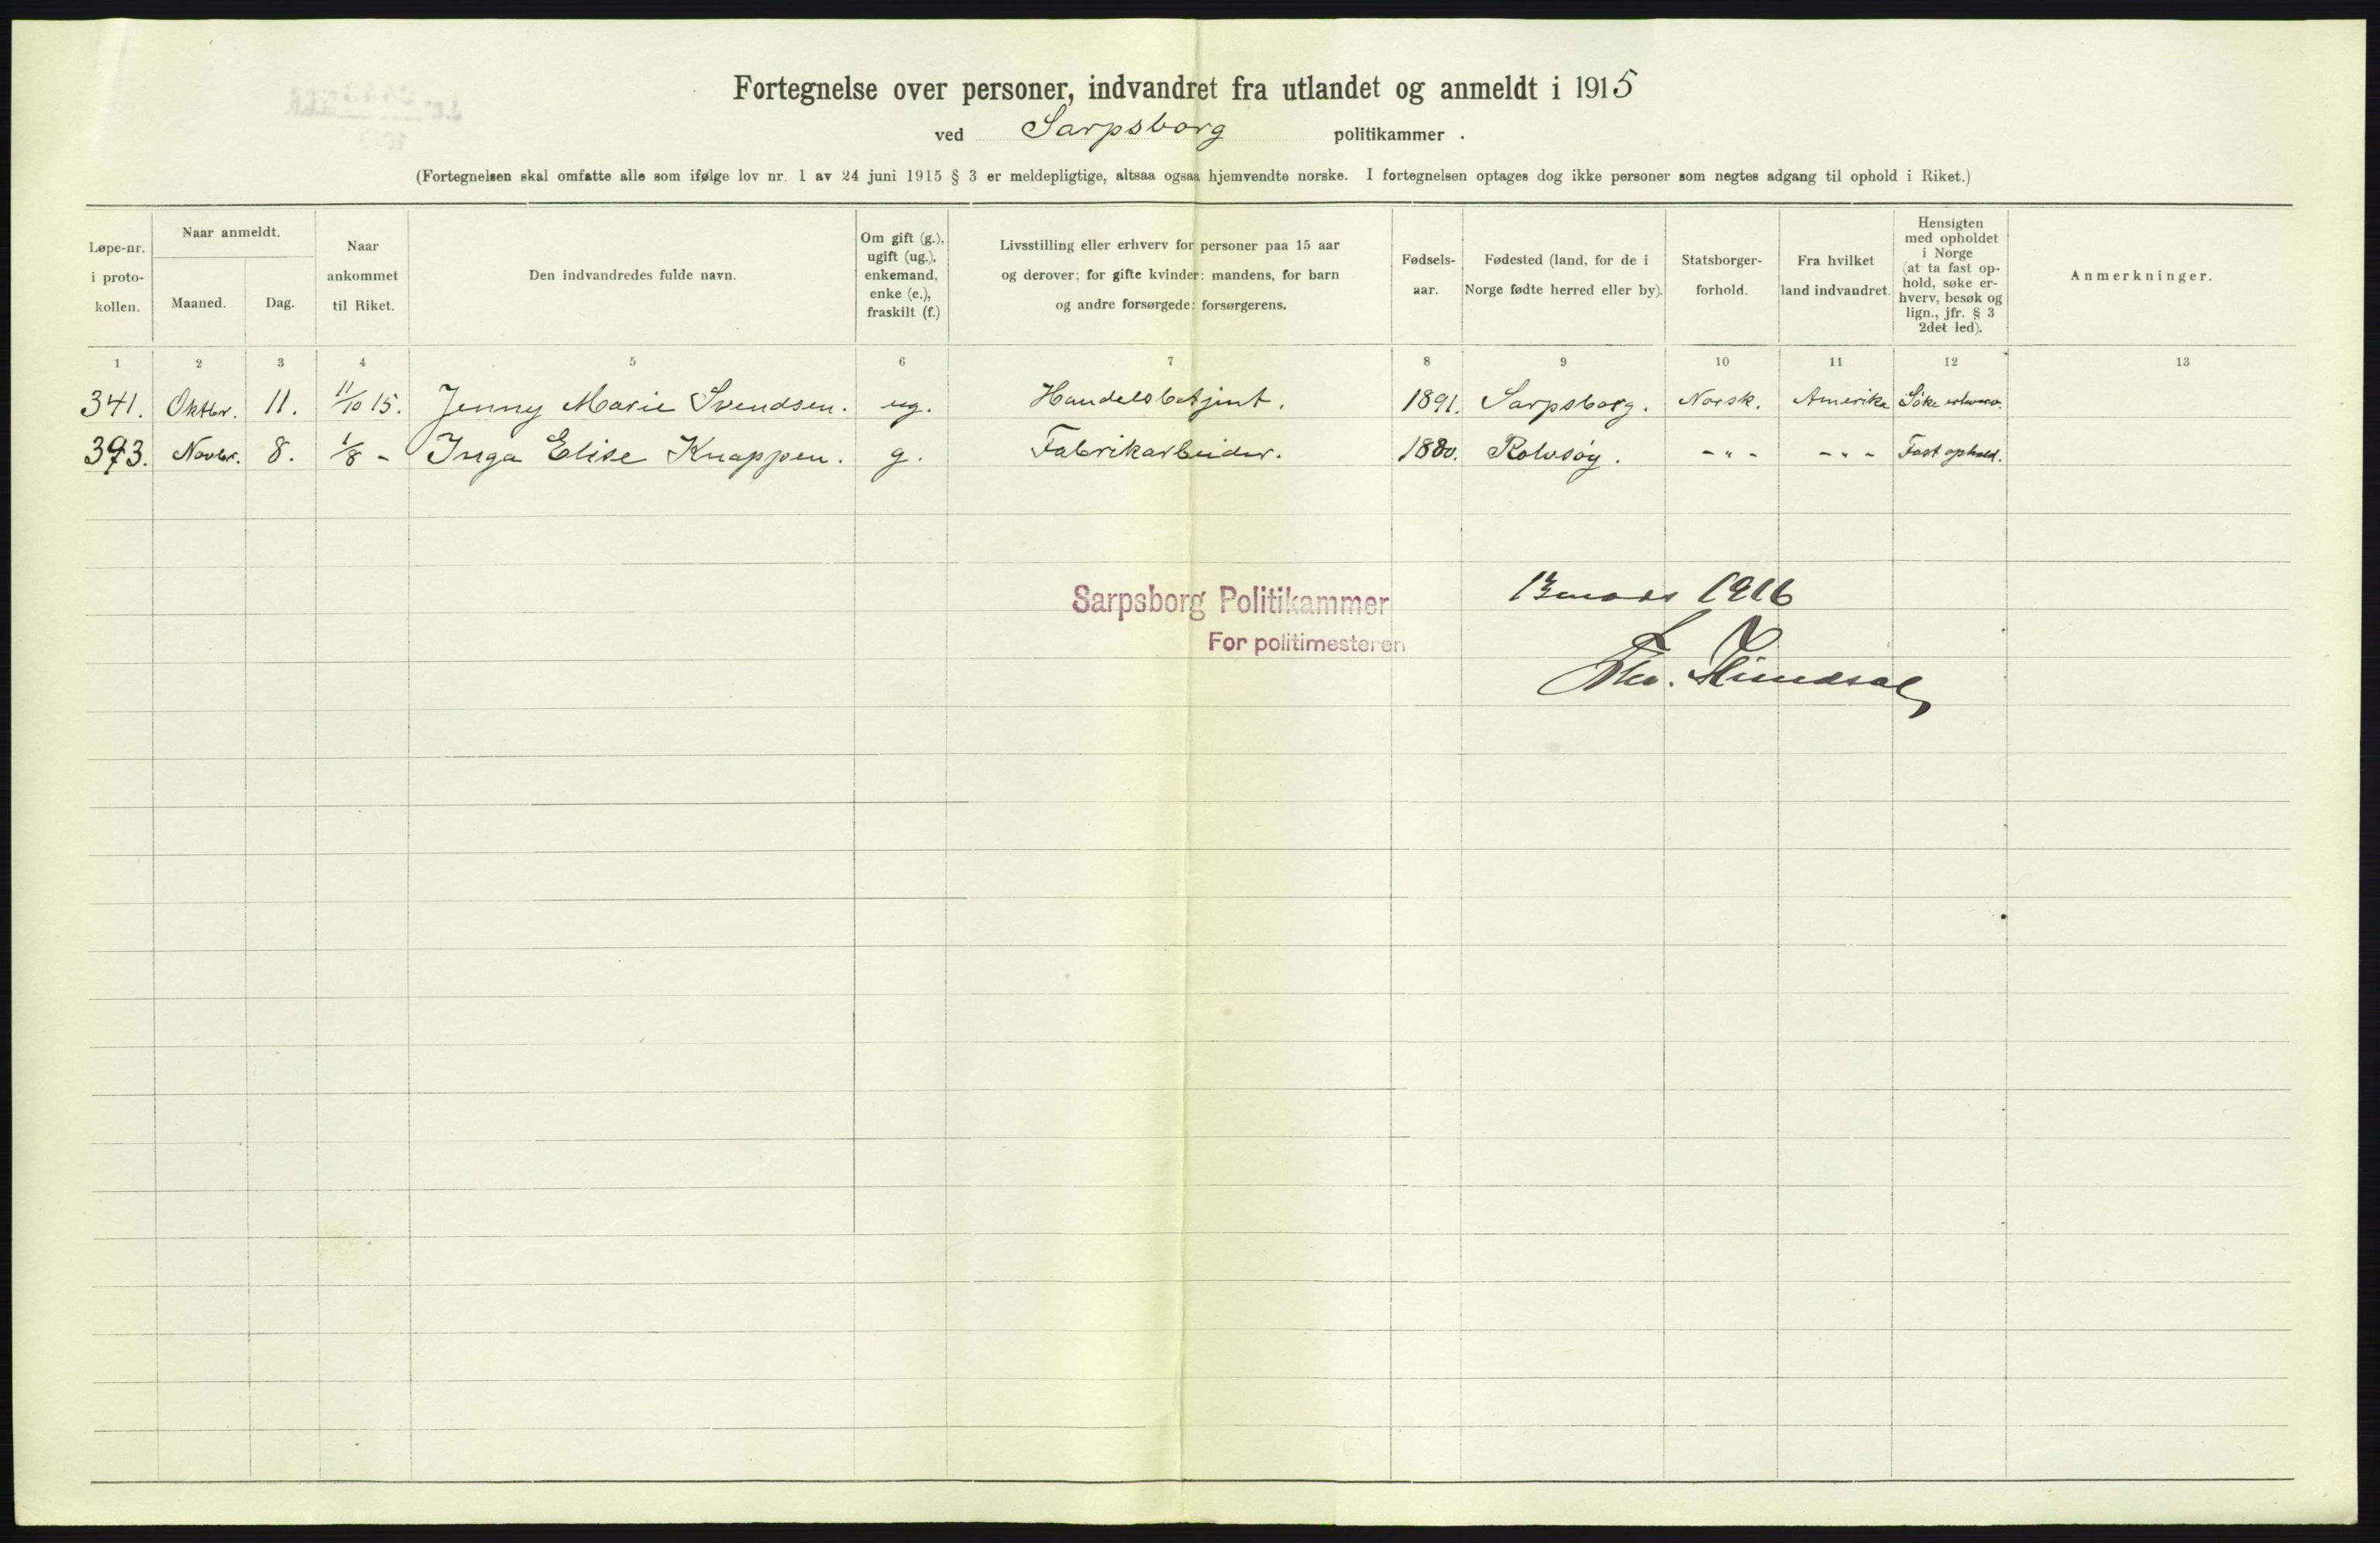 Fortegnelse over personer, indvandret fra utlandet og anmeldt i 1915
ved Sarpsborg politikammer .
(Fortegnelsen skal omfatte alle som ifølge lov nr. 1 av 24 juni 1915 § 3 er meldepligtige, altsaa ogsaa hjemvendte norske. I fortegnelsen optages dog ikke personer som negtes adgang til ophold i Riket.)
Løpe-nr.
i proto-
kollen.
Naar anmeldt.
Maaned.
Dag.
Naar
ankommet
til Riket.
Den indvandredes fulde navn.
Om gift (g.),
ugift (ug.),
enkemand,
enke (e.),
fraskilt (f.)
Livsstilling eller erhverv for personer paa 15 aar
og derover; for gifte kvinder: mandens, for barn
og andre forsørgede: forsørgerens.
Fødsels-
aar.
Fødested (land, for de i
Norge fødte herred eller by).
Statsborger-
forhold.
Fra hvilket
land indvandret.
Hensigten
med opholdet
i Norge
(at ta fast op-
hold, søke er-
hverv, besøk og
lign., jfr. § 3
2det led).
Anmerkninger.
1 2 3 4 5 6 7 8 9 10 11 12 13
341. Oktbr. 11. 11/10 15. Jenny Marie Svendsen. ug. Handelsbetjent. 1891. Sarpsborg. Norsk. Amerika Söke erhverv.
393. Novbr. 8. 1/8 - Inga Elise Knappen. g. Fabrikarbeider. 1880. Rolvsöy. -"- -"- Fast ophold.
Sarpsborg Politikammer 13 mars 1916
For politimesteren